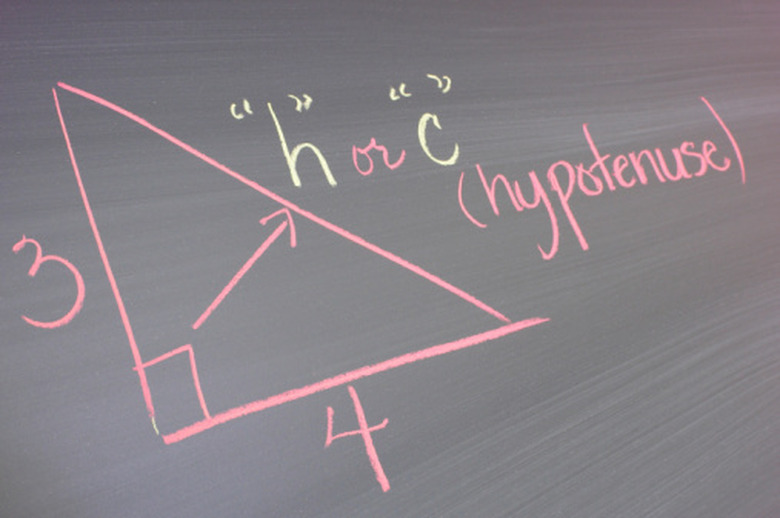 "h" or "c"
(hypotenuse)
3
4